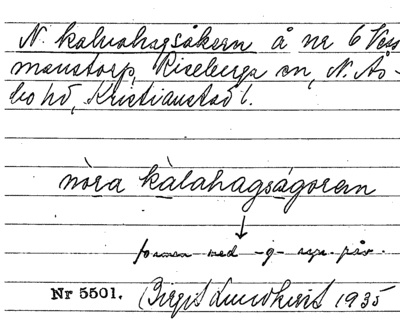 N. kalvahagsåkern å nr 6 Väs
manstorp, Riseberga sn, N. Ås-
bo hd, Kristianstad l.
nòra kàlahagságoren
formen med -g- upp. påv.
Nr 5501. Birgit Lundkvist 1935